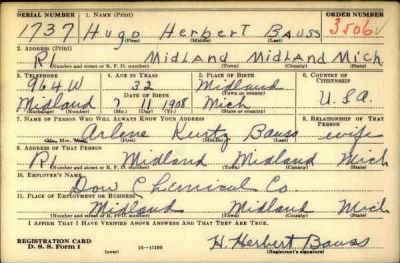 SERIAL NUMBER 1. NAME (Print) ORDER NUMBER
1737 Hugo Herbert Bauss 3506
(First) (Middle) (Last)
2. ADDRESS (Print)
R1 Midland Midland Mich
(Number and street or R. F. D. number) (Town) (County) (State)
3. TELEPHONE 4. AGE IN YEARS 5. PLACE OF BIRTH 6. COUNTRY OF CITIZENSHIP
964W 32 Midland
DATE OF BIRTH (Town or county)
Midland 7 11 1908 Mich U.S.A.
(Exchange) (Number) (Mo.) (Day) (Yr.) (State or country)
7. NAME OF PERSON WHO WILL ALWAYS KNOW YOUR ADDRESS 8. RELATIONSHIP OF THAT PERSON
Arlene Kurtz Bauss wife
(Mr., Mrs., Miss) (First) (Middle) (Last)
9. ADDRESS OF THAT PERSON
R1 Midland Midland Mich
(Number and street or R. F. D. number) (Town) (County) (State)
10. EMPLOYER'S NAME
Dow Chemical Co.
11. PLACE OF EMPLOYMENT OR BUSINESS
Midland Midland Mich
(Number and street or R. F. D. number) (Town) (County) (State)
I AFFIRM THAT I HAVE VERIFIED ABOVE ANSWERS AND THAT THEY ARE TRUE.
REGISTRATION CARD
D. S. S. Form 1 (over) 16—17105 H. Herbert Bauss
(Registrant's signature)